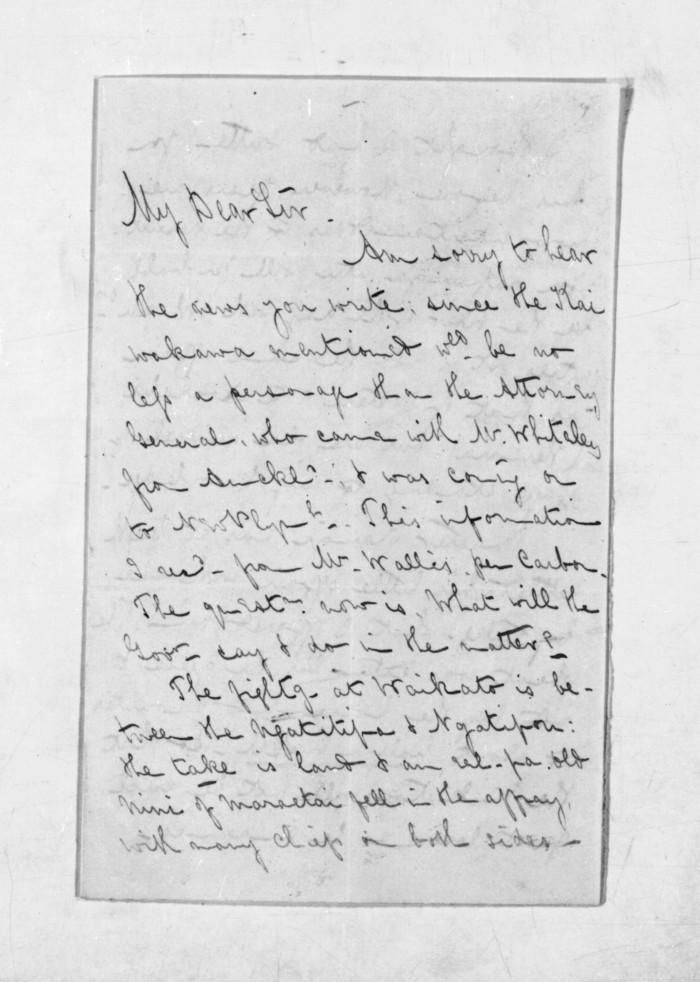 My Dear Sir.
Am sorry to hear
the news you write; since the Kai
wakawa mentioned wld. be no
less a personage than the Attorney
General, who came with Mr. Whiteley
from Auckld-, & was coming on
to N. Plyth. This information
I recd- from Mr. Wallis, per Carbon.
The questn. now is, What will the
Govr- say & do in the matter?
The fightg- at Waikato is be-
tween the Ngatitipa & Ngatipou:
the take is land & an eel-pa. old
Nini of Maraetai fell in the affray,
with many chiefs on both sides-